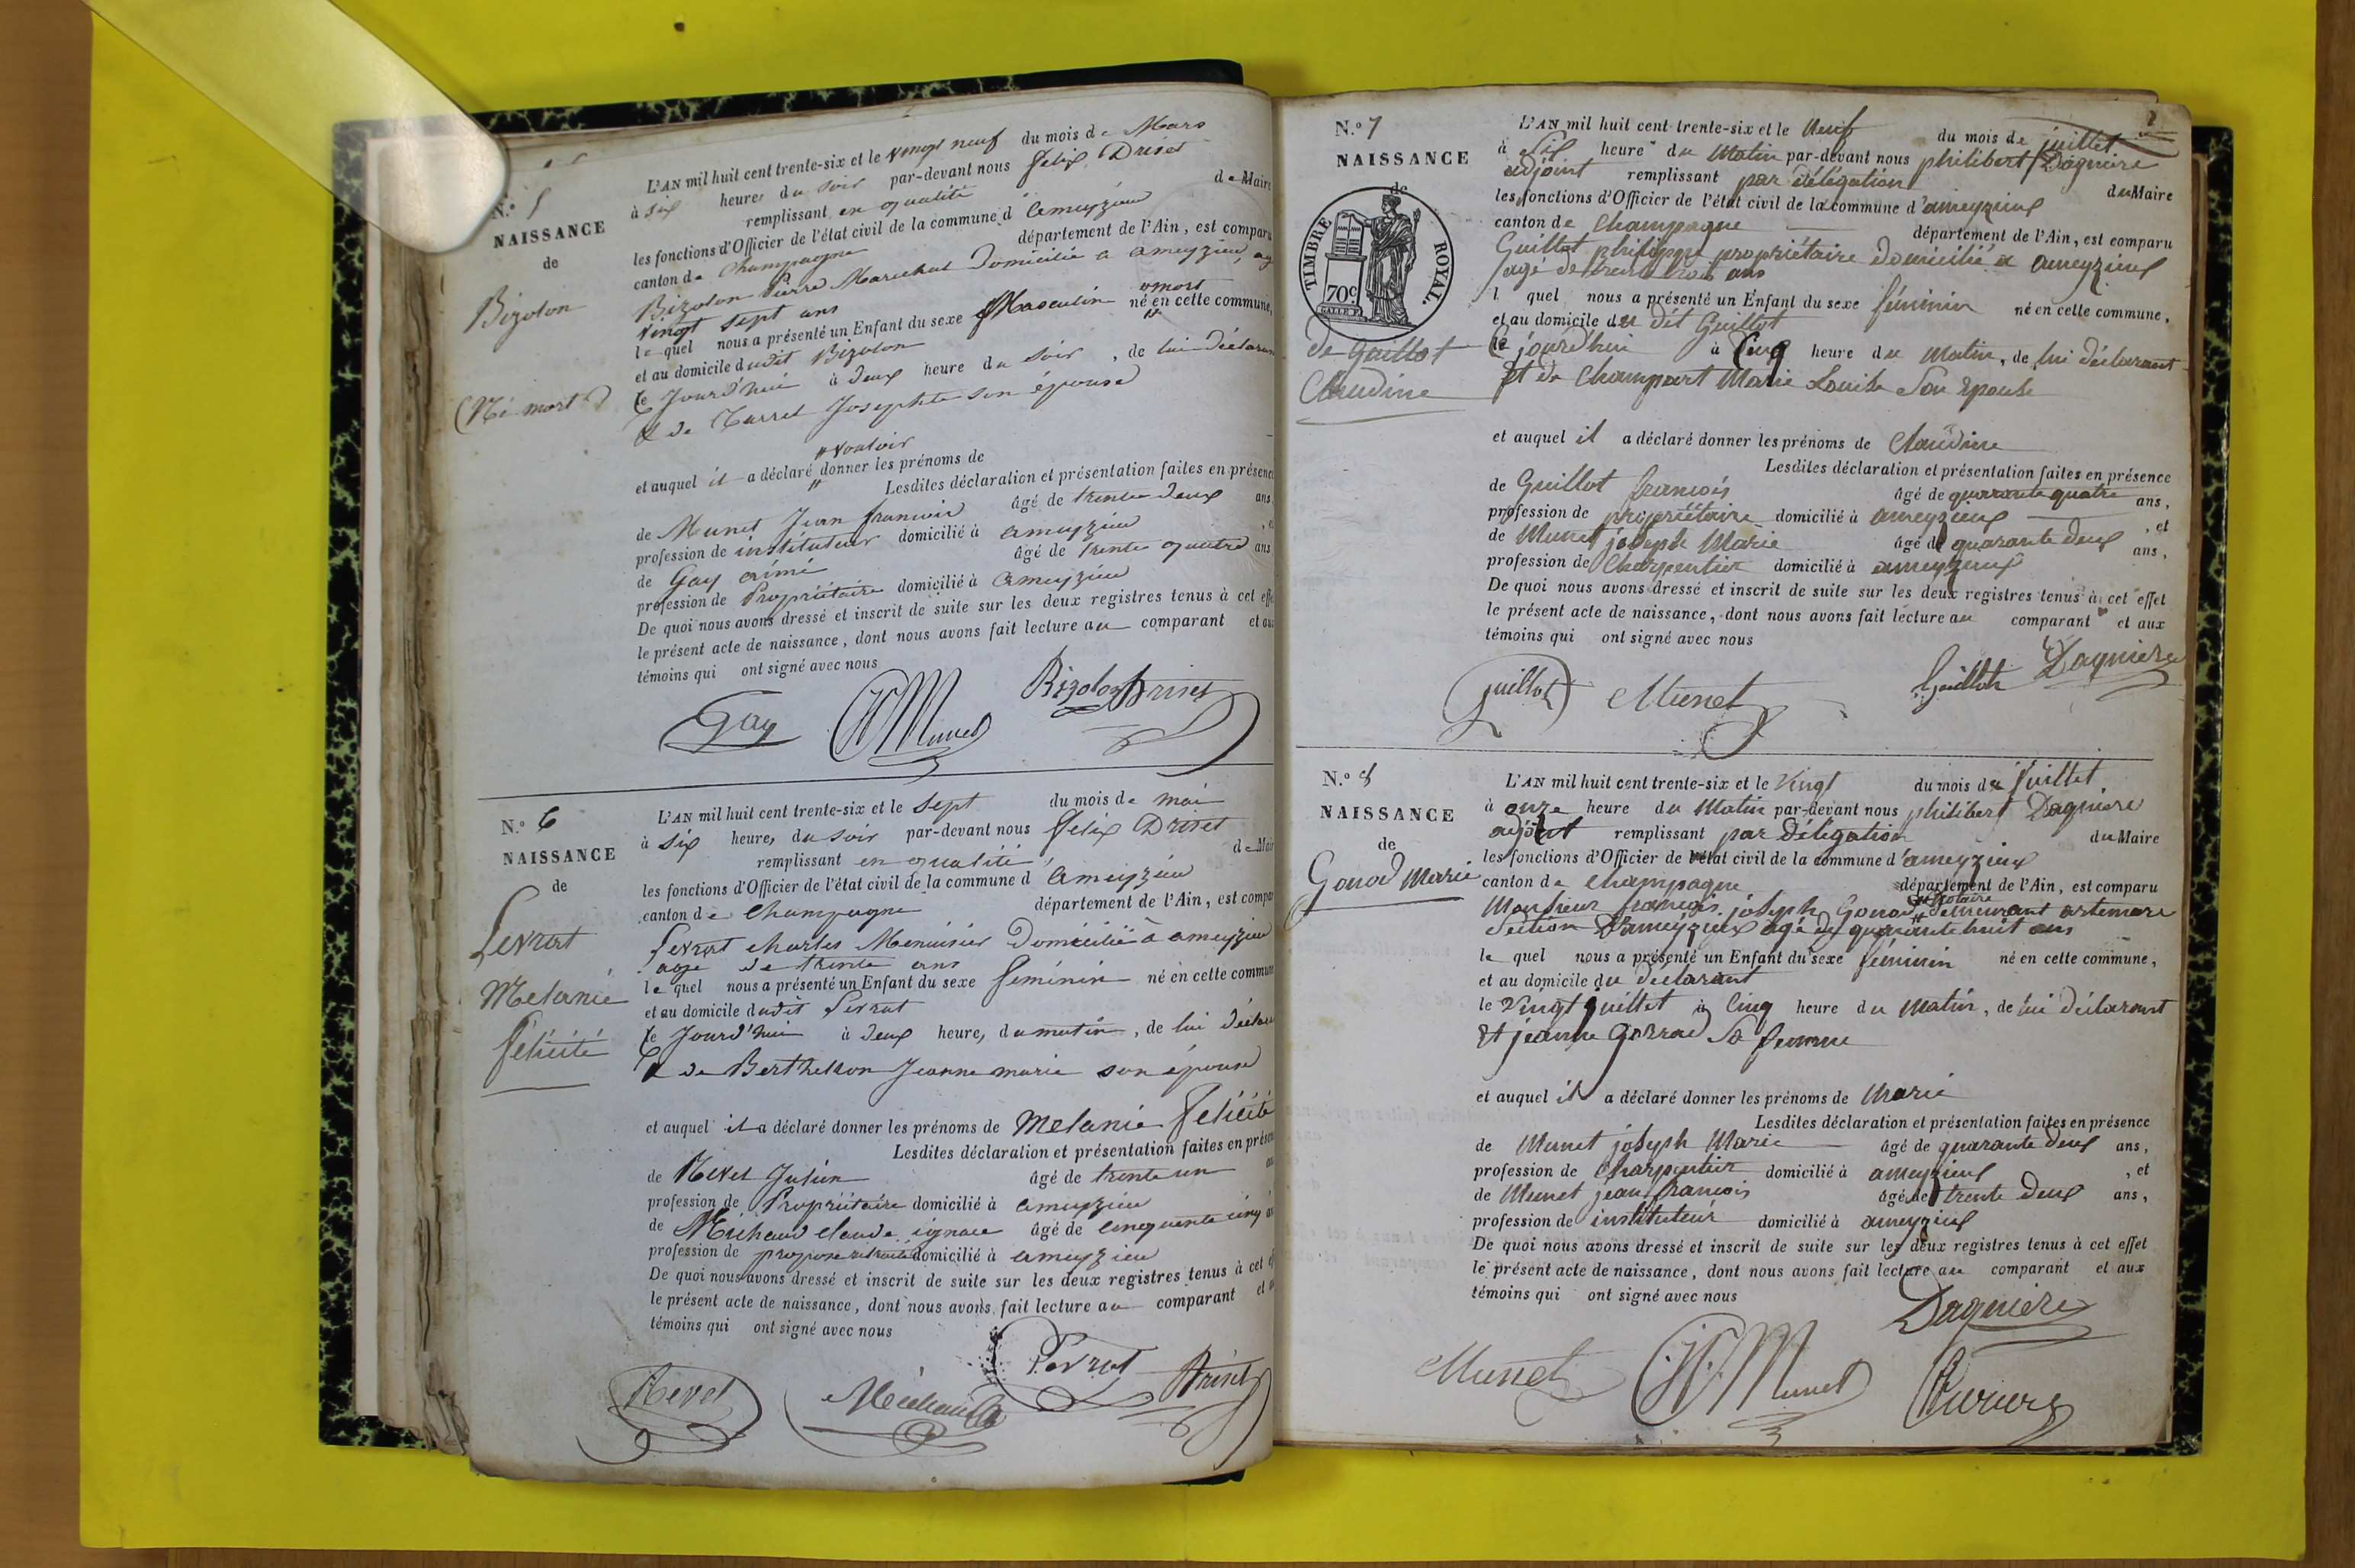 N.º 5
NAISSANCE
de
Bizolon
(Né mort)
L'AN mil huit cent trente-six et le vingt neuf du mois de Mars
à six heures du soir par-devant nous felix Drinet
remplissant en qualité de Maire
les fonctions d'Officier de l'état civil de la commune d'ameyzieu
canton de Champagne département de l'Ain, est comparu
Bizolon Pierre Marechal Domicilié a ameyzieu,
vingt sept ans
mort
le quel nous a présenté un Enfant du sexe Masculin né en cette commune,
et au domicile dudit Bizolon
le Jourd'hui à deux heure du soir, de lui déclarant
& de Josephte son épouse
vouloir
et auquel il a déclaré donner les prénoms de
Lesdites déclaration et présentation faites en présence
de Munet Jean francois âgé de trente deux ans,
profession de instituteur domicilié à ameyzieu
de Gay aimé âgé de trente quatre ans
profession de Propriétaire domicilié à ameyzieu
De quoi nous avons dressé et inscrit de suite sur les deux registres tenus à cet effet
le présent acte de naissance, dont nous avons fait lecture au comparant et aux
témoins qui ont signé avec nous
Gay Munet Bizolon Drinet
N.º 6
NAISSANCE
de
Levrat
Melanie
félicité
L'AN mil huit cent trente-six et le sept du mois de mai
à six heures du soir par-devant nous felix Drinet
remplissant en qualité de Maire
les fonctions d'Officier de l'état civil de la commune d'ameyzieu
canton de Champagne département de l'Ain, est comparu
Levrat charles Menuisier Domicilié à ameyzieu
age de trente ans
le quel nous a présenté un Enfant du sexe feminin né en cette commune
et au domicile dudit Levrat
le Jourd'hui à deux heures du matin, de lui déclarant
& de Jeanne marie son épouse
et auquel il a déclaré donner les prénoms de Melanie felicité
Lesdites déclaration et présentation faites en présence
de Revel Julien âgé de trente un
profession de Propriétaire domicilié à ameyzieu
de Michaud claude ignace âgé de cinquante cinq
profession de domicilié à ameyzieu
De quoi nous avons dressé et inscrit de suite sur les deux registres tenus à cet
le présent acte de naissance, dont nous avons fait lecture au comparant et
témoins qui ont signé avec nous
Revel Michaud Levrat Drinet
N.º 7
NAISSANCE
de
TIMBRE ROYAL.
70c
de Guillot
Claudine
L'AN mil huit cent trente-six et le Neuf du mois de juillet
à Six heure du Matin par-devant nous philibert Dagniere
adjoint remplissant par délégation du Maire
les fonctions d'Officier de l'état civil de la commune d'ameyzieux
canton de Champagne département de l'Ain, est comparu
Guillot philippe propriétaire Domicilié a ameyzieux
agé de trente trois ans
l quel nous a présenté un Enfant du sexe féminin né en cette commune,
et au domicile du dit Guillot
le jourd'hui à Cinq heure du Matin, de lui déclarant
Et de Champart Marie Louise Son Epouse
et auquel il a déclaré donner les prénoms de Claudine
Lesdites déclaration et présentation faites en présence
de Guillot francois âgé de quarante quatre ans,
profession de propriétaire domicilié à ameyzieux, et
de Munet joseph Marie âgé de quarante deux ans,
profession de Charpentier domicilié à ameyzieux
De quoi nous avons dressé et inscrit de suite sur les deux registres tenus à cet effet
le présent acte de naissance, dont nous avons fait lecture au comparant et aux
témoins qui ont signé avec nous
Guillot Munet Guillot Dagniere
N.º 8
NAISSANCE
de
Gonod Marie
L'AN mil huit cent trente-six et le Vingt du mois de Juillet
à onze heure du Matin par-devant nous philibert Dagniere
adjoint remplissant par Délégation du Maire
les fonctions d'Officier de l'état civil de la commune d'ameyzieux
canton de Champagne département de l'Ain, est comparu
Notaire
Monsieur francois joseph Gonod demeurant artemare
Section D'ameyzieux agé de quarante huit ans
le quel nous a présenté un Enfant du sexe féminin né en cette commune,
et au domicile du déclarant
le Vingt juillet à Cinq heure du Matin, de lui déclarant
Et jeanne Sa femme
et auquel il a déclaré donner les prénoms de Marie
Lesdites déclaration et présentation faites en présence
de Munet joseph Marie âgé de quarante deux ans,
profession de Charpentier domicilié à ameyzieux, et
de Munet jean francois âgé de trente deux ans,
profession de instituteur domicilié à ameyzieux
De quoi nous avons dressé et inscrit de suite sur les deux registres tenus à cet effet
le présent acte de naissance, dont nous avons fait lecture au comparant et aux
témoins qui ont signé avec nous
Dagniere
Munet Munet